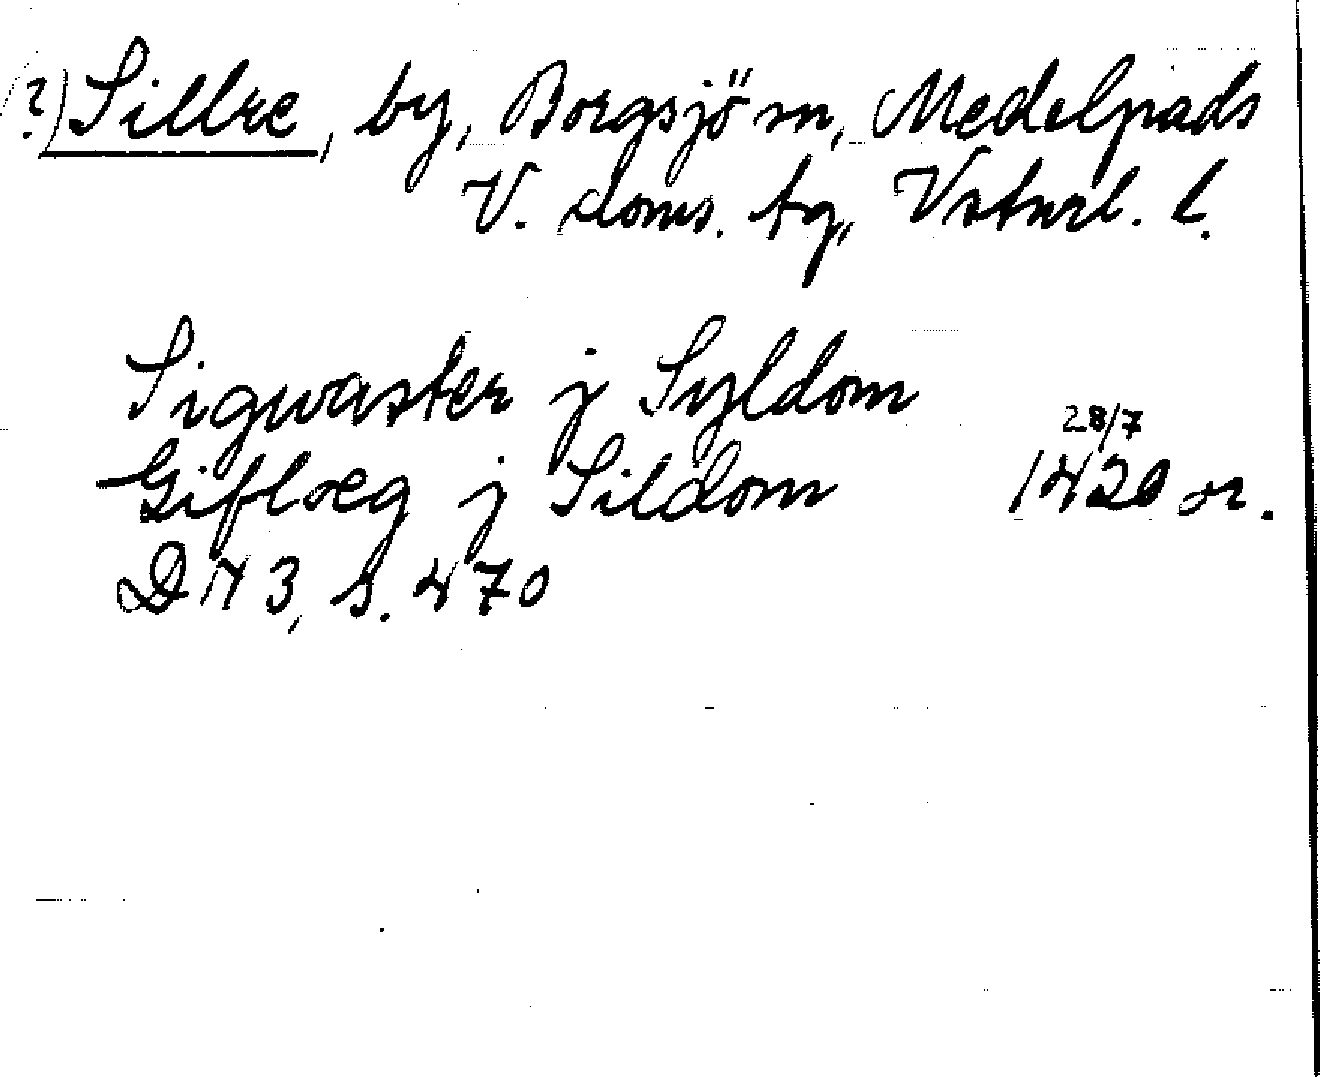 (?) Sillre, by, Borgsjö sn, Medelpads
V. doms. tg, Vstnrl. l.
Sigwaster j Syldom
Gifloeg j Sildom 28/7 1420 or.
DN 3, s. 470